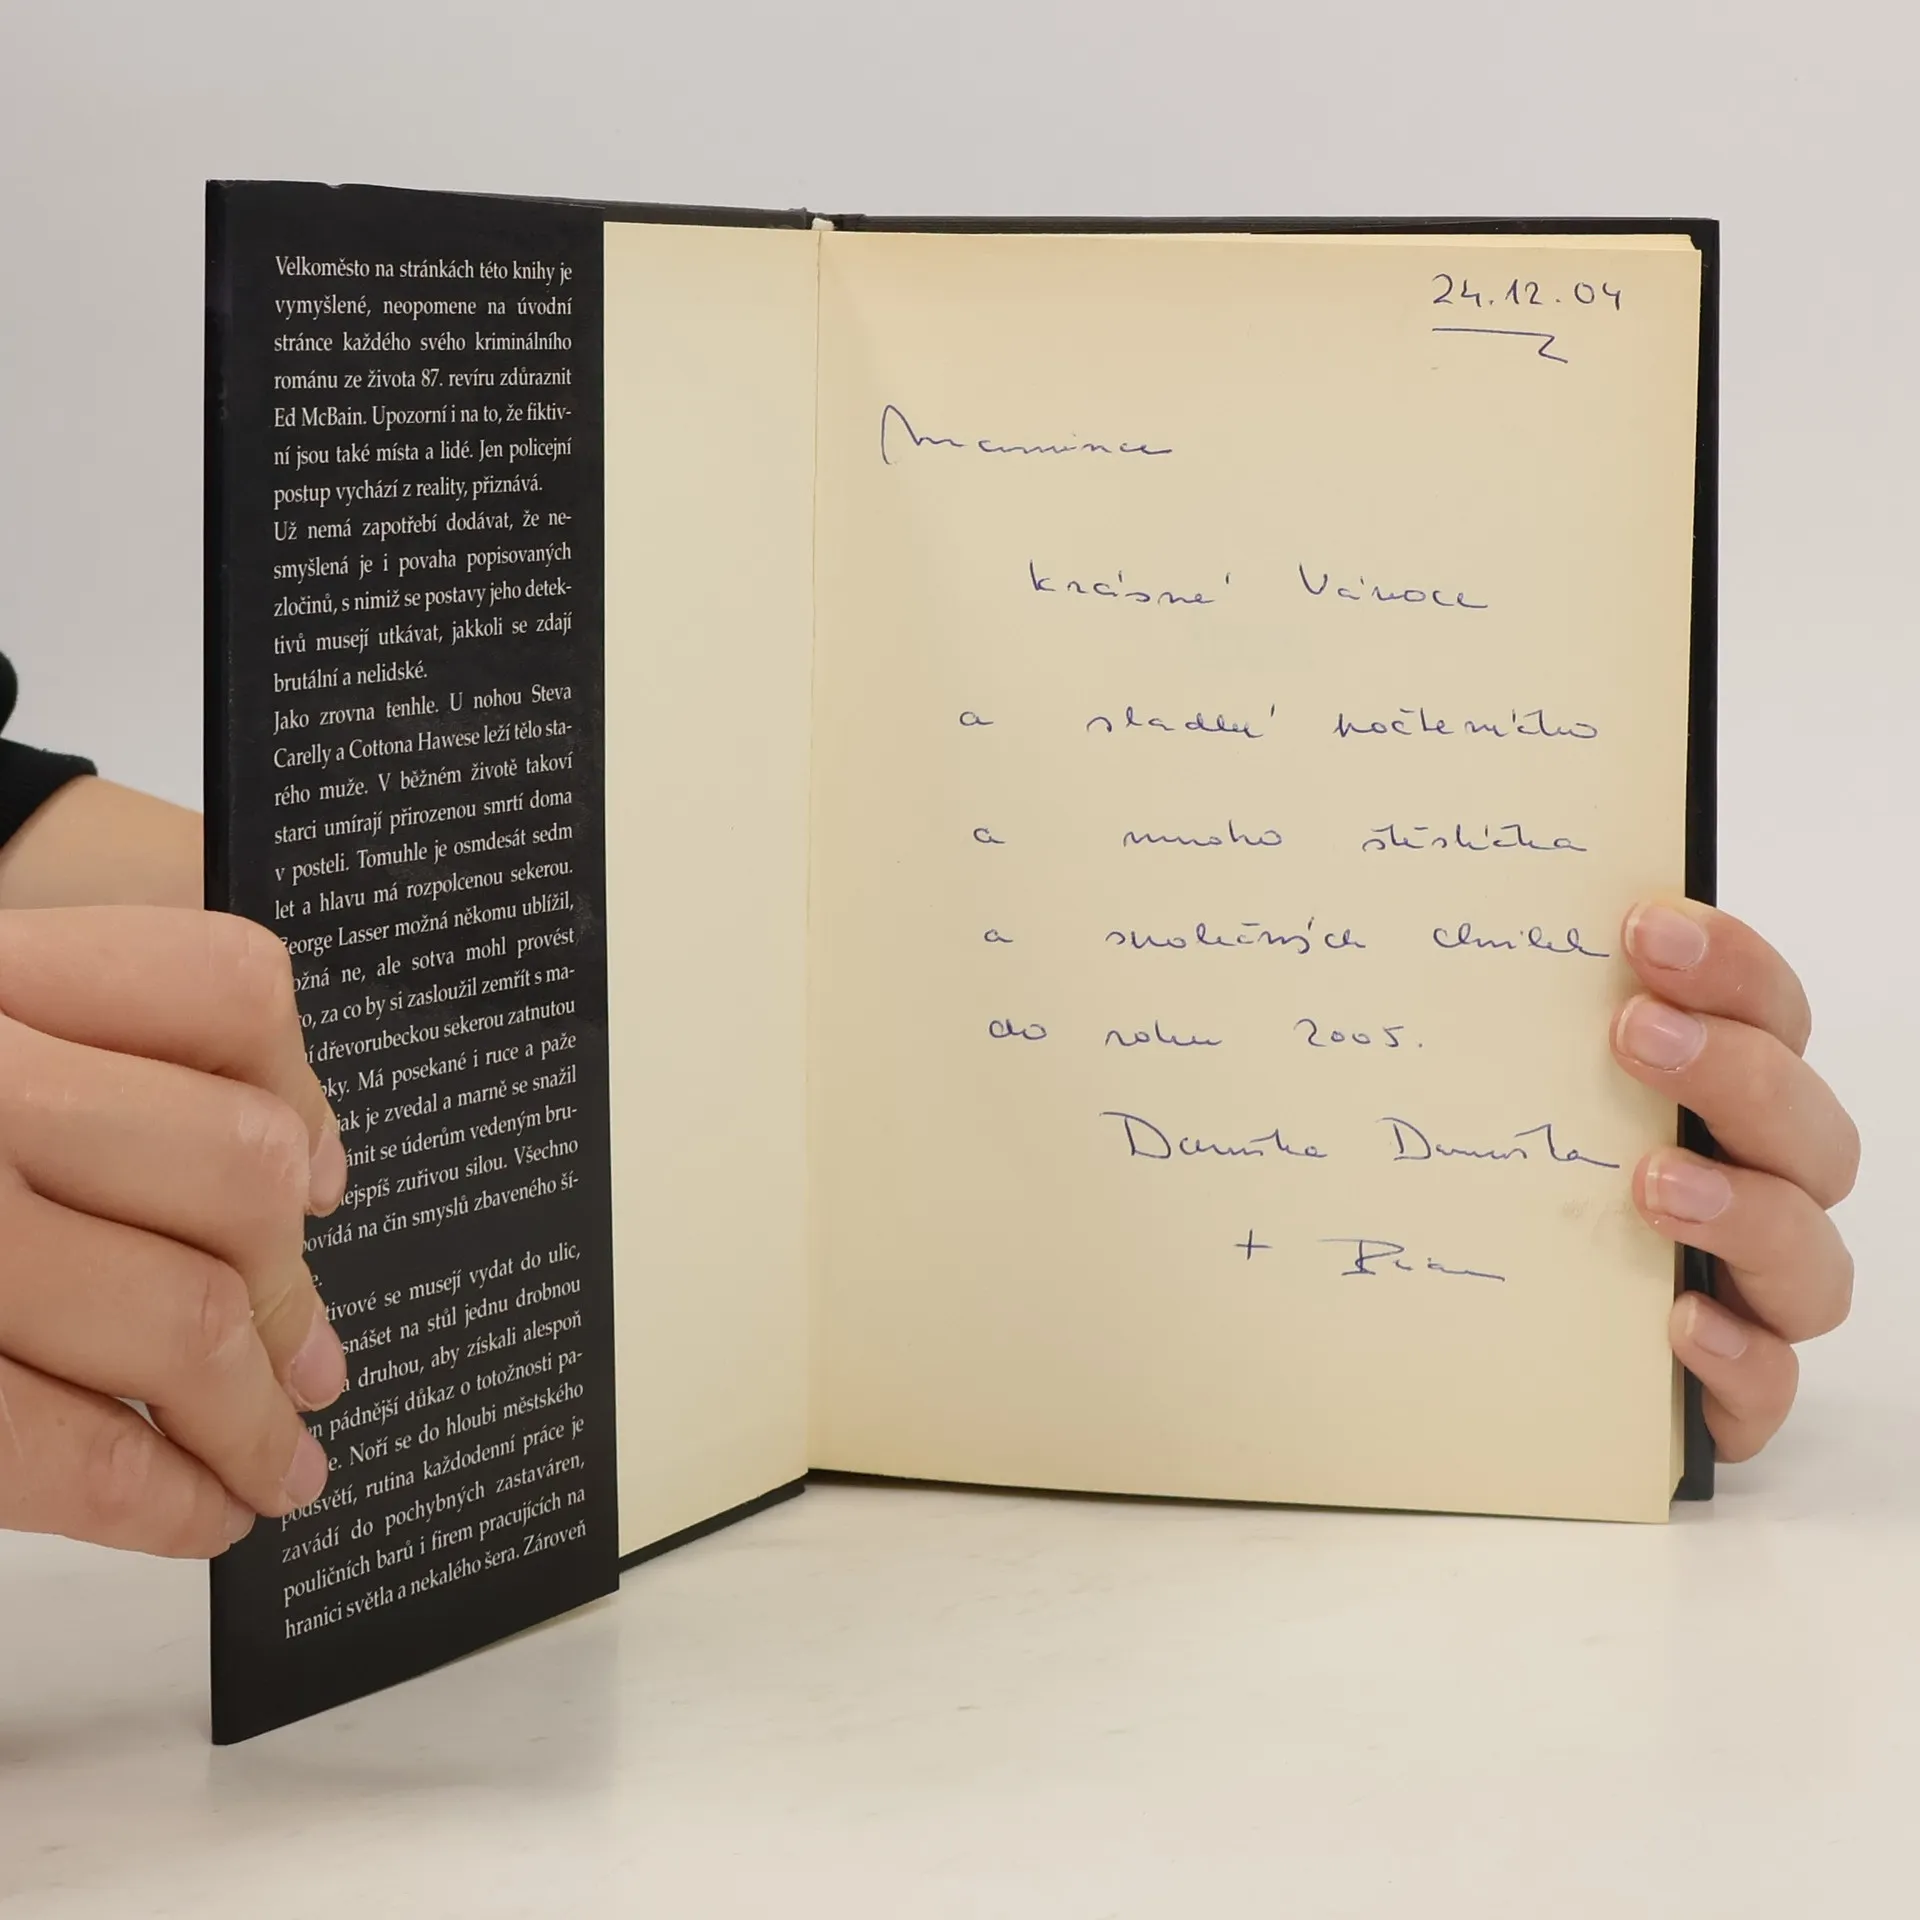 Velkoměsto na stránkách této knihy je
vymyšlené, neopomene na úvodní
stránce každého svého kriminálního
románu ze života 87. revíru zdůraznit
Ed McBain. Upozorní i na to, že fiktiv-
ní jsou také místa a lidé. Jen policejní
postup vychází z reality, přiznává.
Už nemá zapotřebí dodávat, že ne-
smyšlená je i povaha popisovaných
zločinů, s nimiž se postavy jeho detek-
tivů musejí utkávat, jakkoli se zdají
brutální a nelidské.
Jako zrovna tenhle. U nohou Steva
Carelly a Cottona Hawese leží tělo sta-
rého muže. V běžném životě takoví
starci umírají přirozenou smrtí doma
v posteli. Tomuhle je osmdesát sedm
let a hlavu má rozpolcenou sekerou.
George Lasser možná někomu ublížil,
ožná ne, ale sotva mohl provést
co, za co by si zasloužil zemřít s ma-
í dřevorubeckou sekerou zatnutou
bky. Má posekané i ruce a paže
jak je zvedal a marně se snažil
ánit se úderům vedeným bru-
ejspíš zuřivou silou. Všechno
ovídá na čin smyslů zbaveného ší-
e.
tivové se musejí vydat do ulic,
snášet na stůl jednu drobnou
a druhou, aby získali alespoň
en pádnější důkaz o totožnosti pa-
e. Noří se do hloubi městského
podsvětí, rutina každodenní práce je
zavádí do pochybných zastaváren,
pouličních barů i firem pracujících na
hranici světla a nekalého šera. Zároveň
24.12.04
Mamince
krásné Vánoce
a sladké počteníčko
a mnoho štěstíčka
a společných chvilek
do roku 2005.
Danuška
+